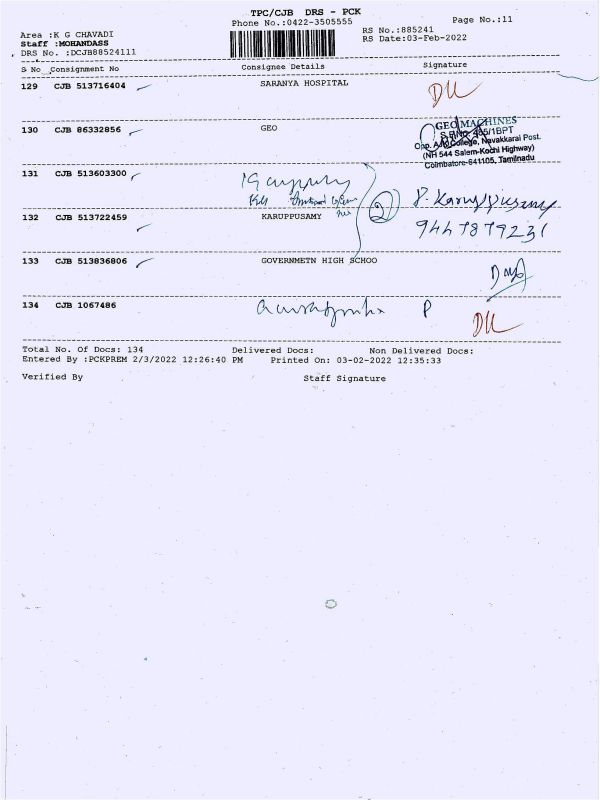 TPC/CJB DRS - PCK
Phone No.:0422-3505555
Page No.:11
Area :K G CHAVADI
RS No.:885241
Staff :MOHANDASS
RS Date:03-Feb-2022
DRS No. :DCJB88524111
S No Consignment No Consignee Details Signature
129 CJB 513716404 SARANYA HOSPITAL
130 CJB 86332856 GEO
GEO MACHINES
(NH 544 Salem-Kochi Highway)
Coimbatore-641105, Tamilnadu
131 CJB 513603300
132 CJB 513722459 KARUPPUSAMY
2
P. Karuppusamy
133 CJB 513836806 GOVERNMETN HIGH SCHOO
134 CJB 1067486
P
Total No. Of Docs: 134 Delivered Docs: Non Delivered Docs:
Entered By :PCKPREM 2/3/2022 12:26:40 PM Printed On: 03-02-2022 12:35:33
Verified By Staff Signature